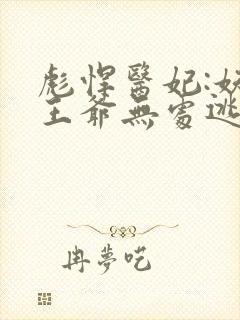 彪悍醫妃:妖
王爺無處逃
冉夢吃